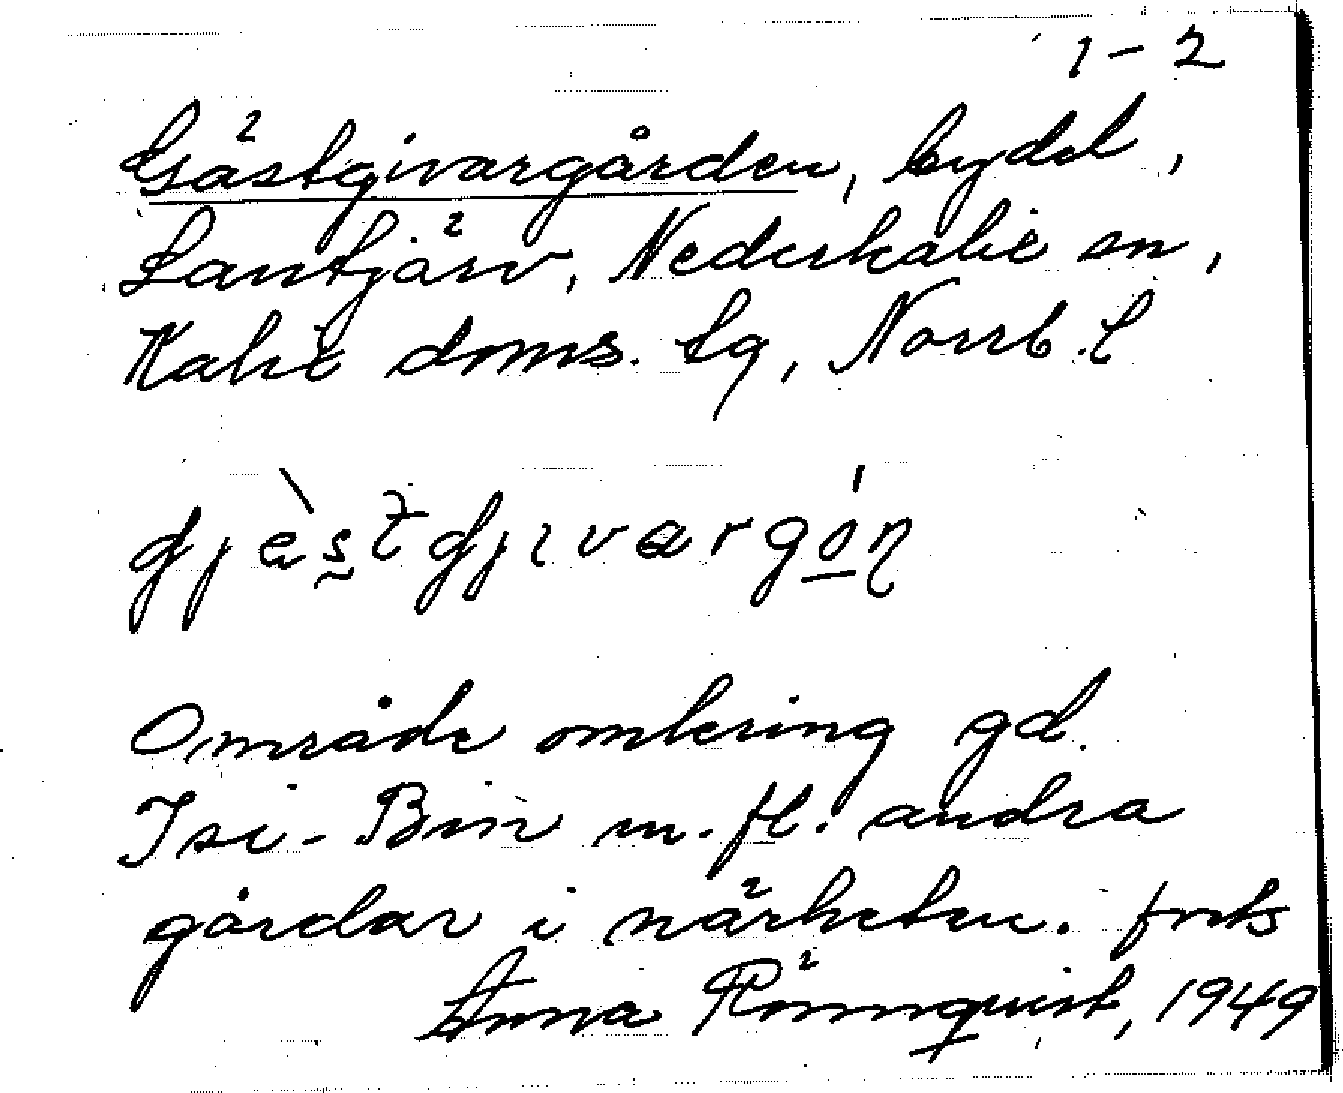 1-2
Gästgivargården, bydel,
Lantjärv, Nederkalix sn,
Kalix doms. tg, Norrb. l
Område omkring gd.
Isi-Bin m. fl. andra
gårdar i närheten. forts
Anna Rönnquist, 1949